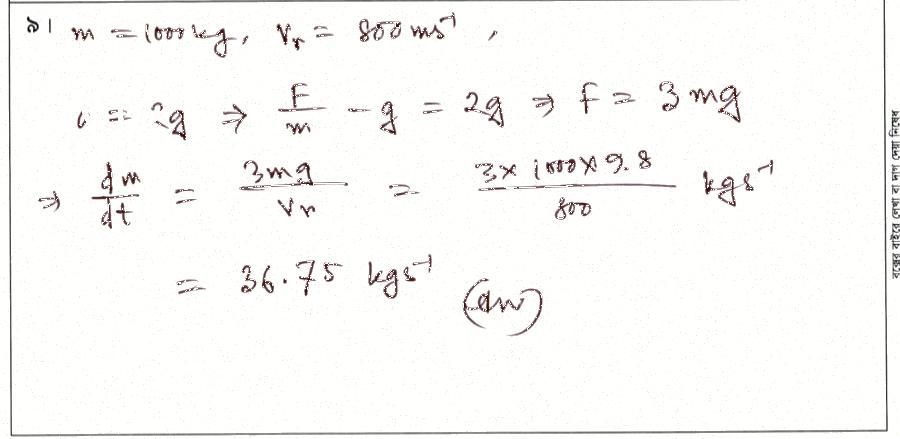 ৯। m = 1000 kg, Vr = 800 ms⁻¹,
a = 2g ⇒ F/m - g = 2g ⇒ F = 3 mg
⇒ dm/dt = 3mg/Vr = 3 × 1000 × 9.8/800 kgs⁻¹
= 36.75 kgs⁻¹ (Ans)
বক্সের বাইরে লেখা বা দাগ দেয়া নিষেধ